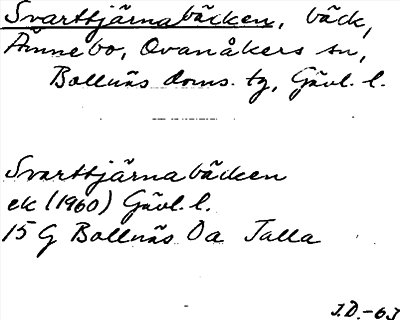 Svarttjärnabäcken, bäck,
Ämnebo, Ovanåkers sn,
Bollnäs doms. tg, Gävl. l.
Svarttjärnabäcken
ek (1960) Gävl. l.
15 G Bollnäs Oa Talla
J.D.-63